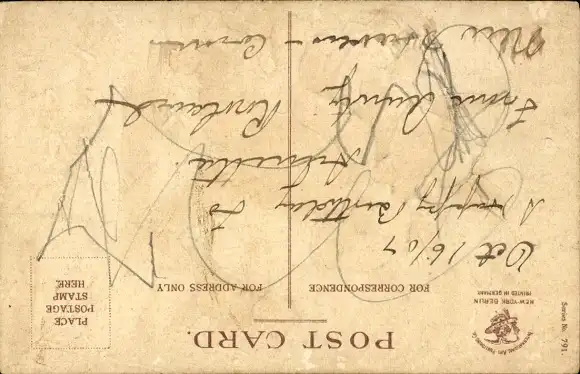 Series No. 791.
INTERNATIONAL ART PUBLISHING CO.
NEW-YORK BERLIN
PRINTED IN GERMANY
POST CARD.
FOR CORRESPONDENCE
FOR ADDRESS ONLY
PLACE
POSTAGE
STAMP
HERE.
Oct 16/07
A Happy Birthday to
from Aunty
New Haven - Conn